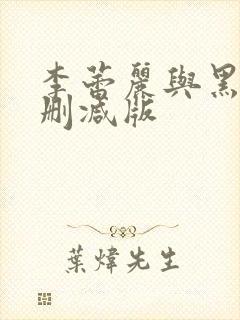 李蕾麗與黑
刪減版
葉煒先生